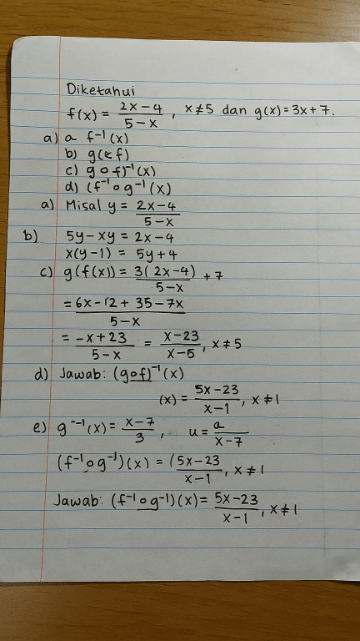 Diketahui
f(x) = (2x-4)/(5-x), x≠5 dan g(x) = 3x+7.
a) a f⁻¹(x)
b) g(ɛf)
c) g∘f)⁻¹(x)
d) (f⁻¹∘g⁻¹(x)
a) Misal y = (2x-4)/(5-x)
b) 5y-xy = 2x-4
x(y-1) = 5y+4
c) g(f(x)) = 3(2x-4)/(5-x) +7
= (6x-12+35-7x)/(5-x)
= (-x+23)/(5-x) = (x-23)/(x-5), x≠5
d) Jawab: (gof)⁻¹(x)
(x) = (5x-23)/(x-1), x≠1
e) g⁻¹(x) = (x-7)/3, u = a/(x-7)
(f⁻¹∘g⁻¹)(x) = (5x-23)/(x-1), x≠1
Jawab: (f⁻¹∘g⁻¹)(x) = (5x-23)/(x-1), x≠1